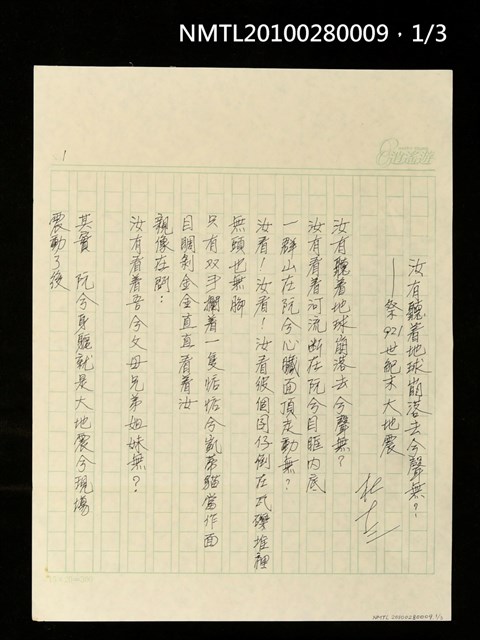 NMTL20100280009，1/3
1
汝有聽着地球崩落去兮聲無？
——祭921世紀末大地震
杜十三
汝有聽着地球崩落去兮聲無？
汝有看着河流斷在阮兮目眶内底
一群山在阮兮心臟面頂走動無？
汝看！汝看！汝看彼個囝仔倒在瓦礫堆裡
無頭也無脚
只有双手攔着一隻恬恬兮氣芬貓當作面
目睭剝金金直直看着汝
親像在問：
汝有看着吾兮父母兄弟姐妹無？
其實 阮兮身軀就是大地震兮現場
震動了後
NMTL20100280009 1/3